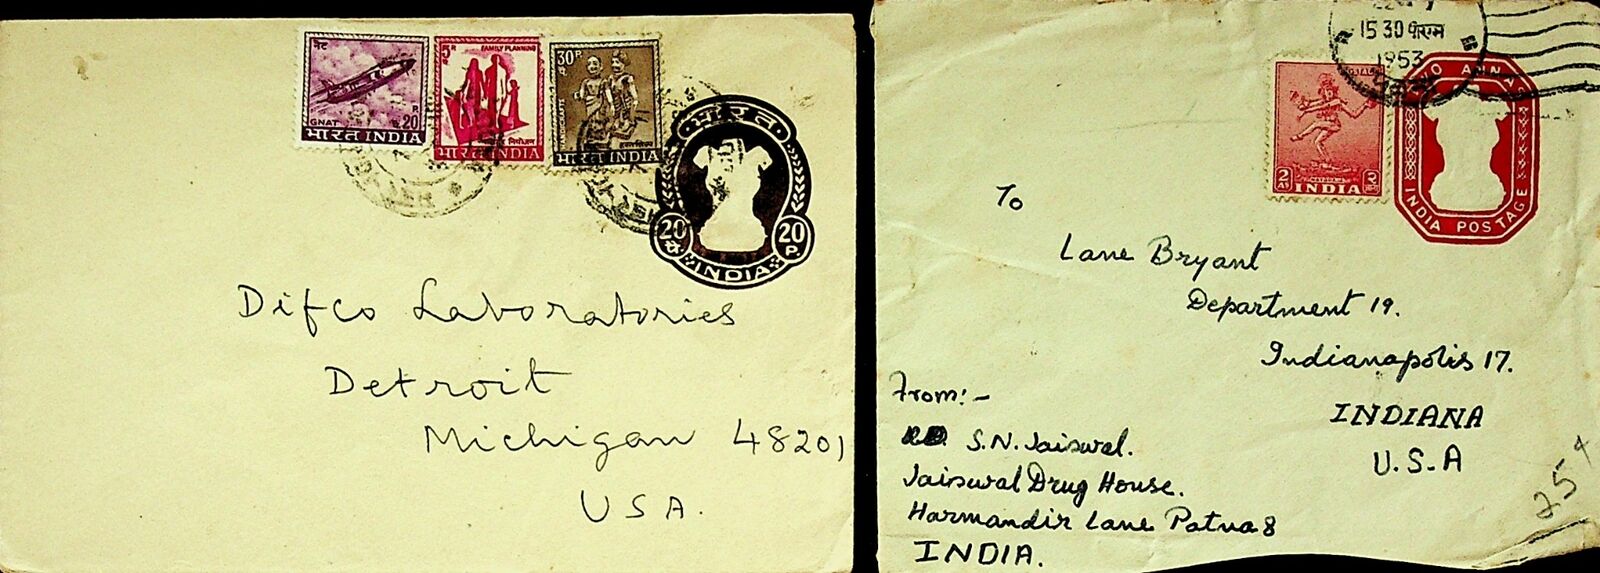 नेट
GNAT
रु.20
P
भारत INDIA
5
P
FAMILY PLANNING
नियोजन
भारत INDIA
30
P
HANDICRAFT
हस्तशिल्प
भारत INDIA
भारत
20 20
P.
INDIA
Difco Laboratories
Detroit
Michigan 48201
USA.
15 30 पीएम
1953
POSTAGE
2 AS
INDIA
TWO ANNAS
INDIA POSTAGE
To
Lane Bryant
Department 19.
Indianapolis 17.
INDIANA
U.S.A
From:-
S.N. Jaiswal.
Jaiswal Drug House.
Harmandir Lane Patna 8
INDIA.